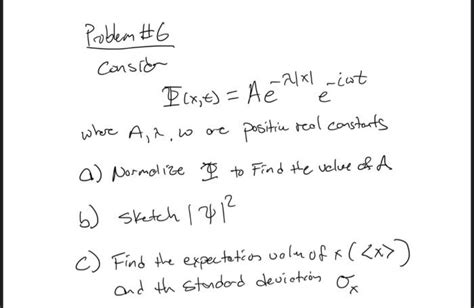 Problem #6
Consider
Ψ(x,t) = Ae^{-λ|x|} e^{-iωt}
where A, λ, ω are positive real constants
a) Normalize Ψ to Find the value of A
b) Sketch |ψ|²
c) Find the expectation value of x (<x>)
and the standard deviation σₓ